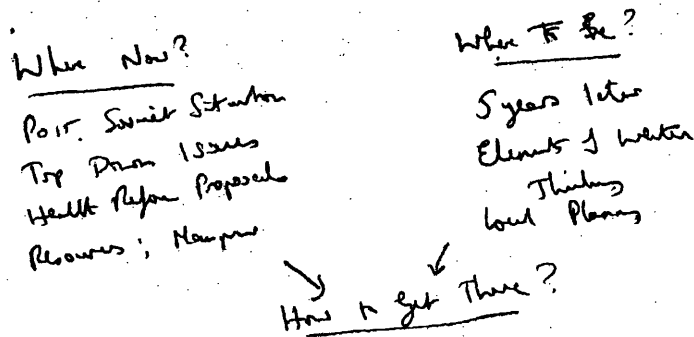 Where Now?
Post. Soviet Situation
Top Down Issues
Health Reform Proposals
Resources; Manpower
Where To Be?
5 years later
Elements of Western
Thinking
Local Planning
How to Get There?